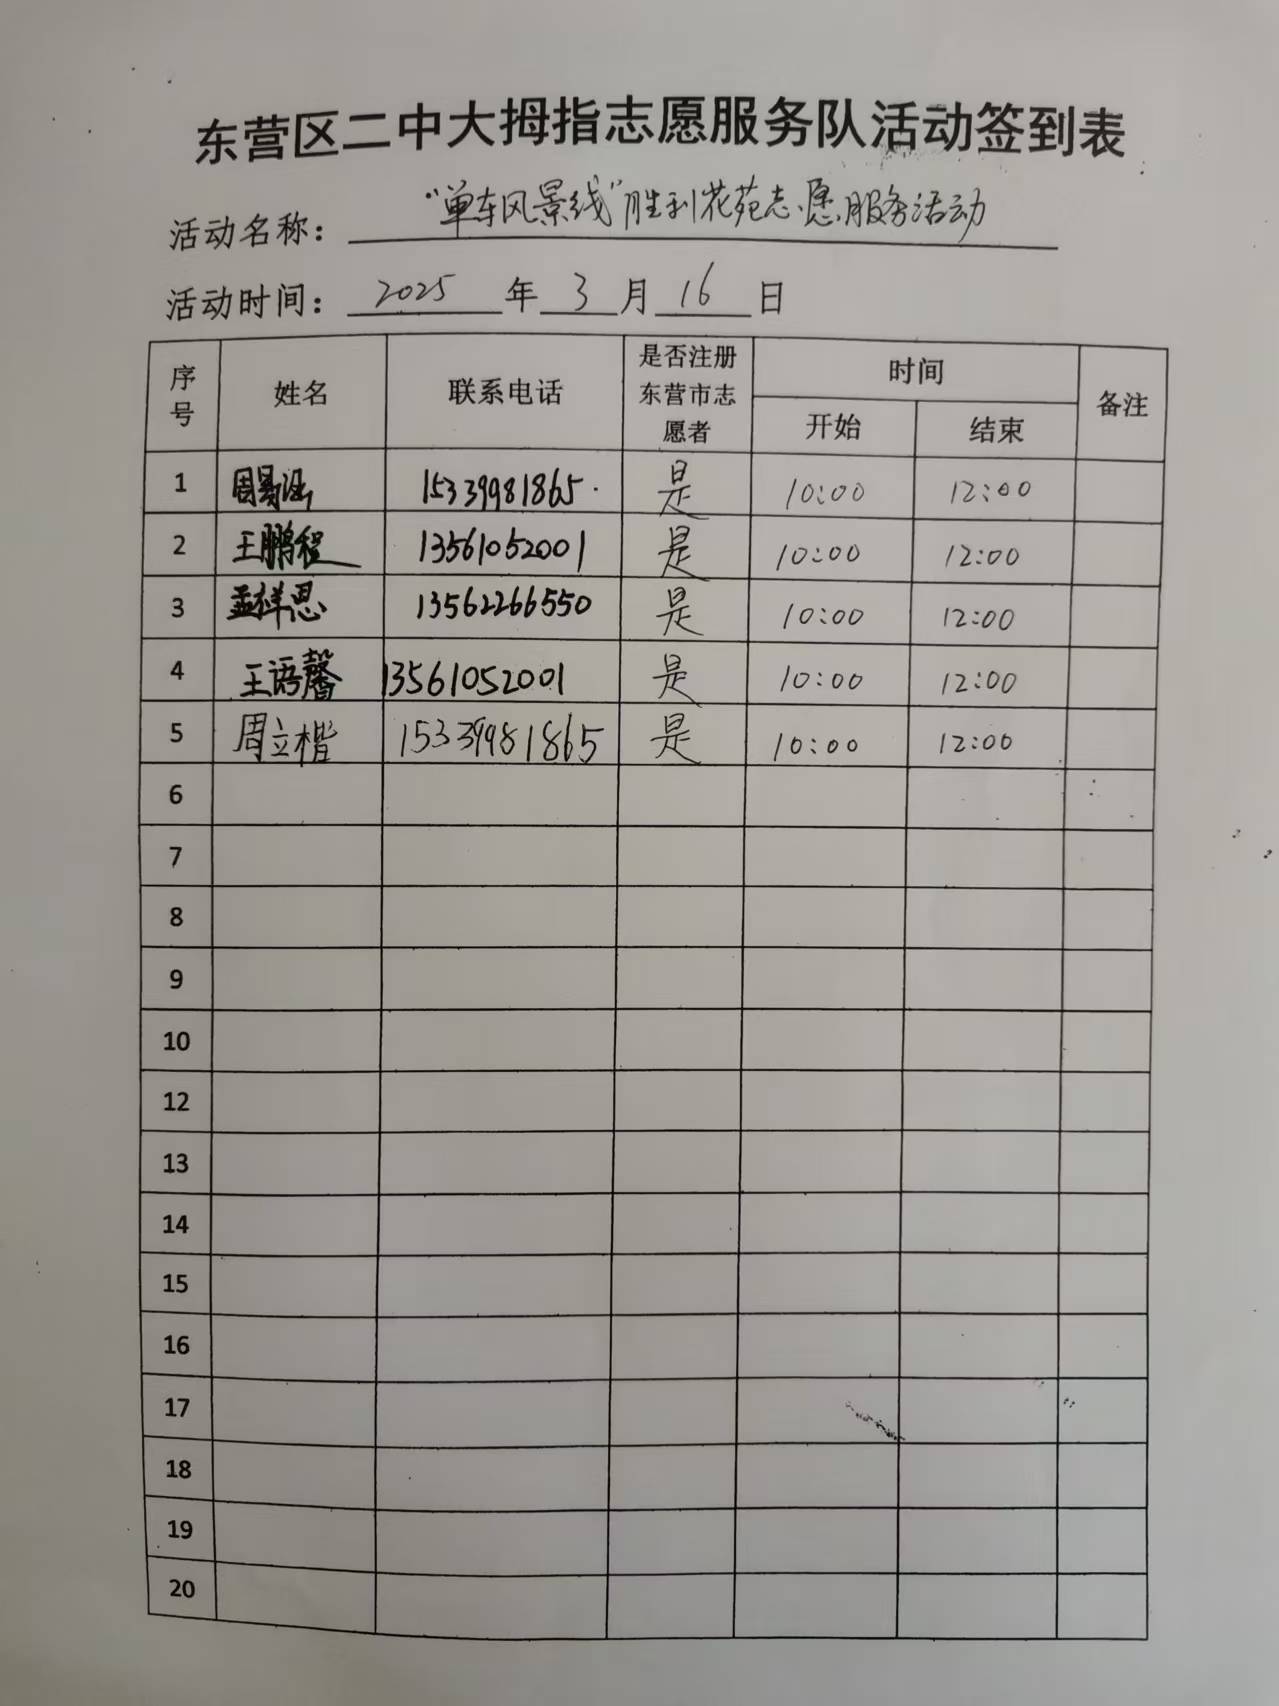 东营区二中大拇指志愿服务队活动签到表
活动名称：“单车风景线”胜利花苑志愿服务活动
活动时间：2025年3月16日
序号 姓名 联系电话 是否注册东营市志愿者 时间 备注
开始 结束
1 周易涵 15339981865 是 10:00 12:00
2 王鹏程 13561052001 是 10:00 12:00
3 孟祥恩 13562266550 是 10:00 12:00
4 王语馨 13561052001 是 10:00 12:00
5 周立楷 15339981865 是 10:00 12:00
6
7
8
9
10
12
13
14
15
16
17
18
19
20